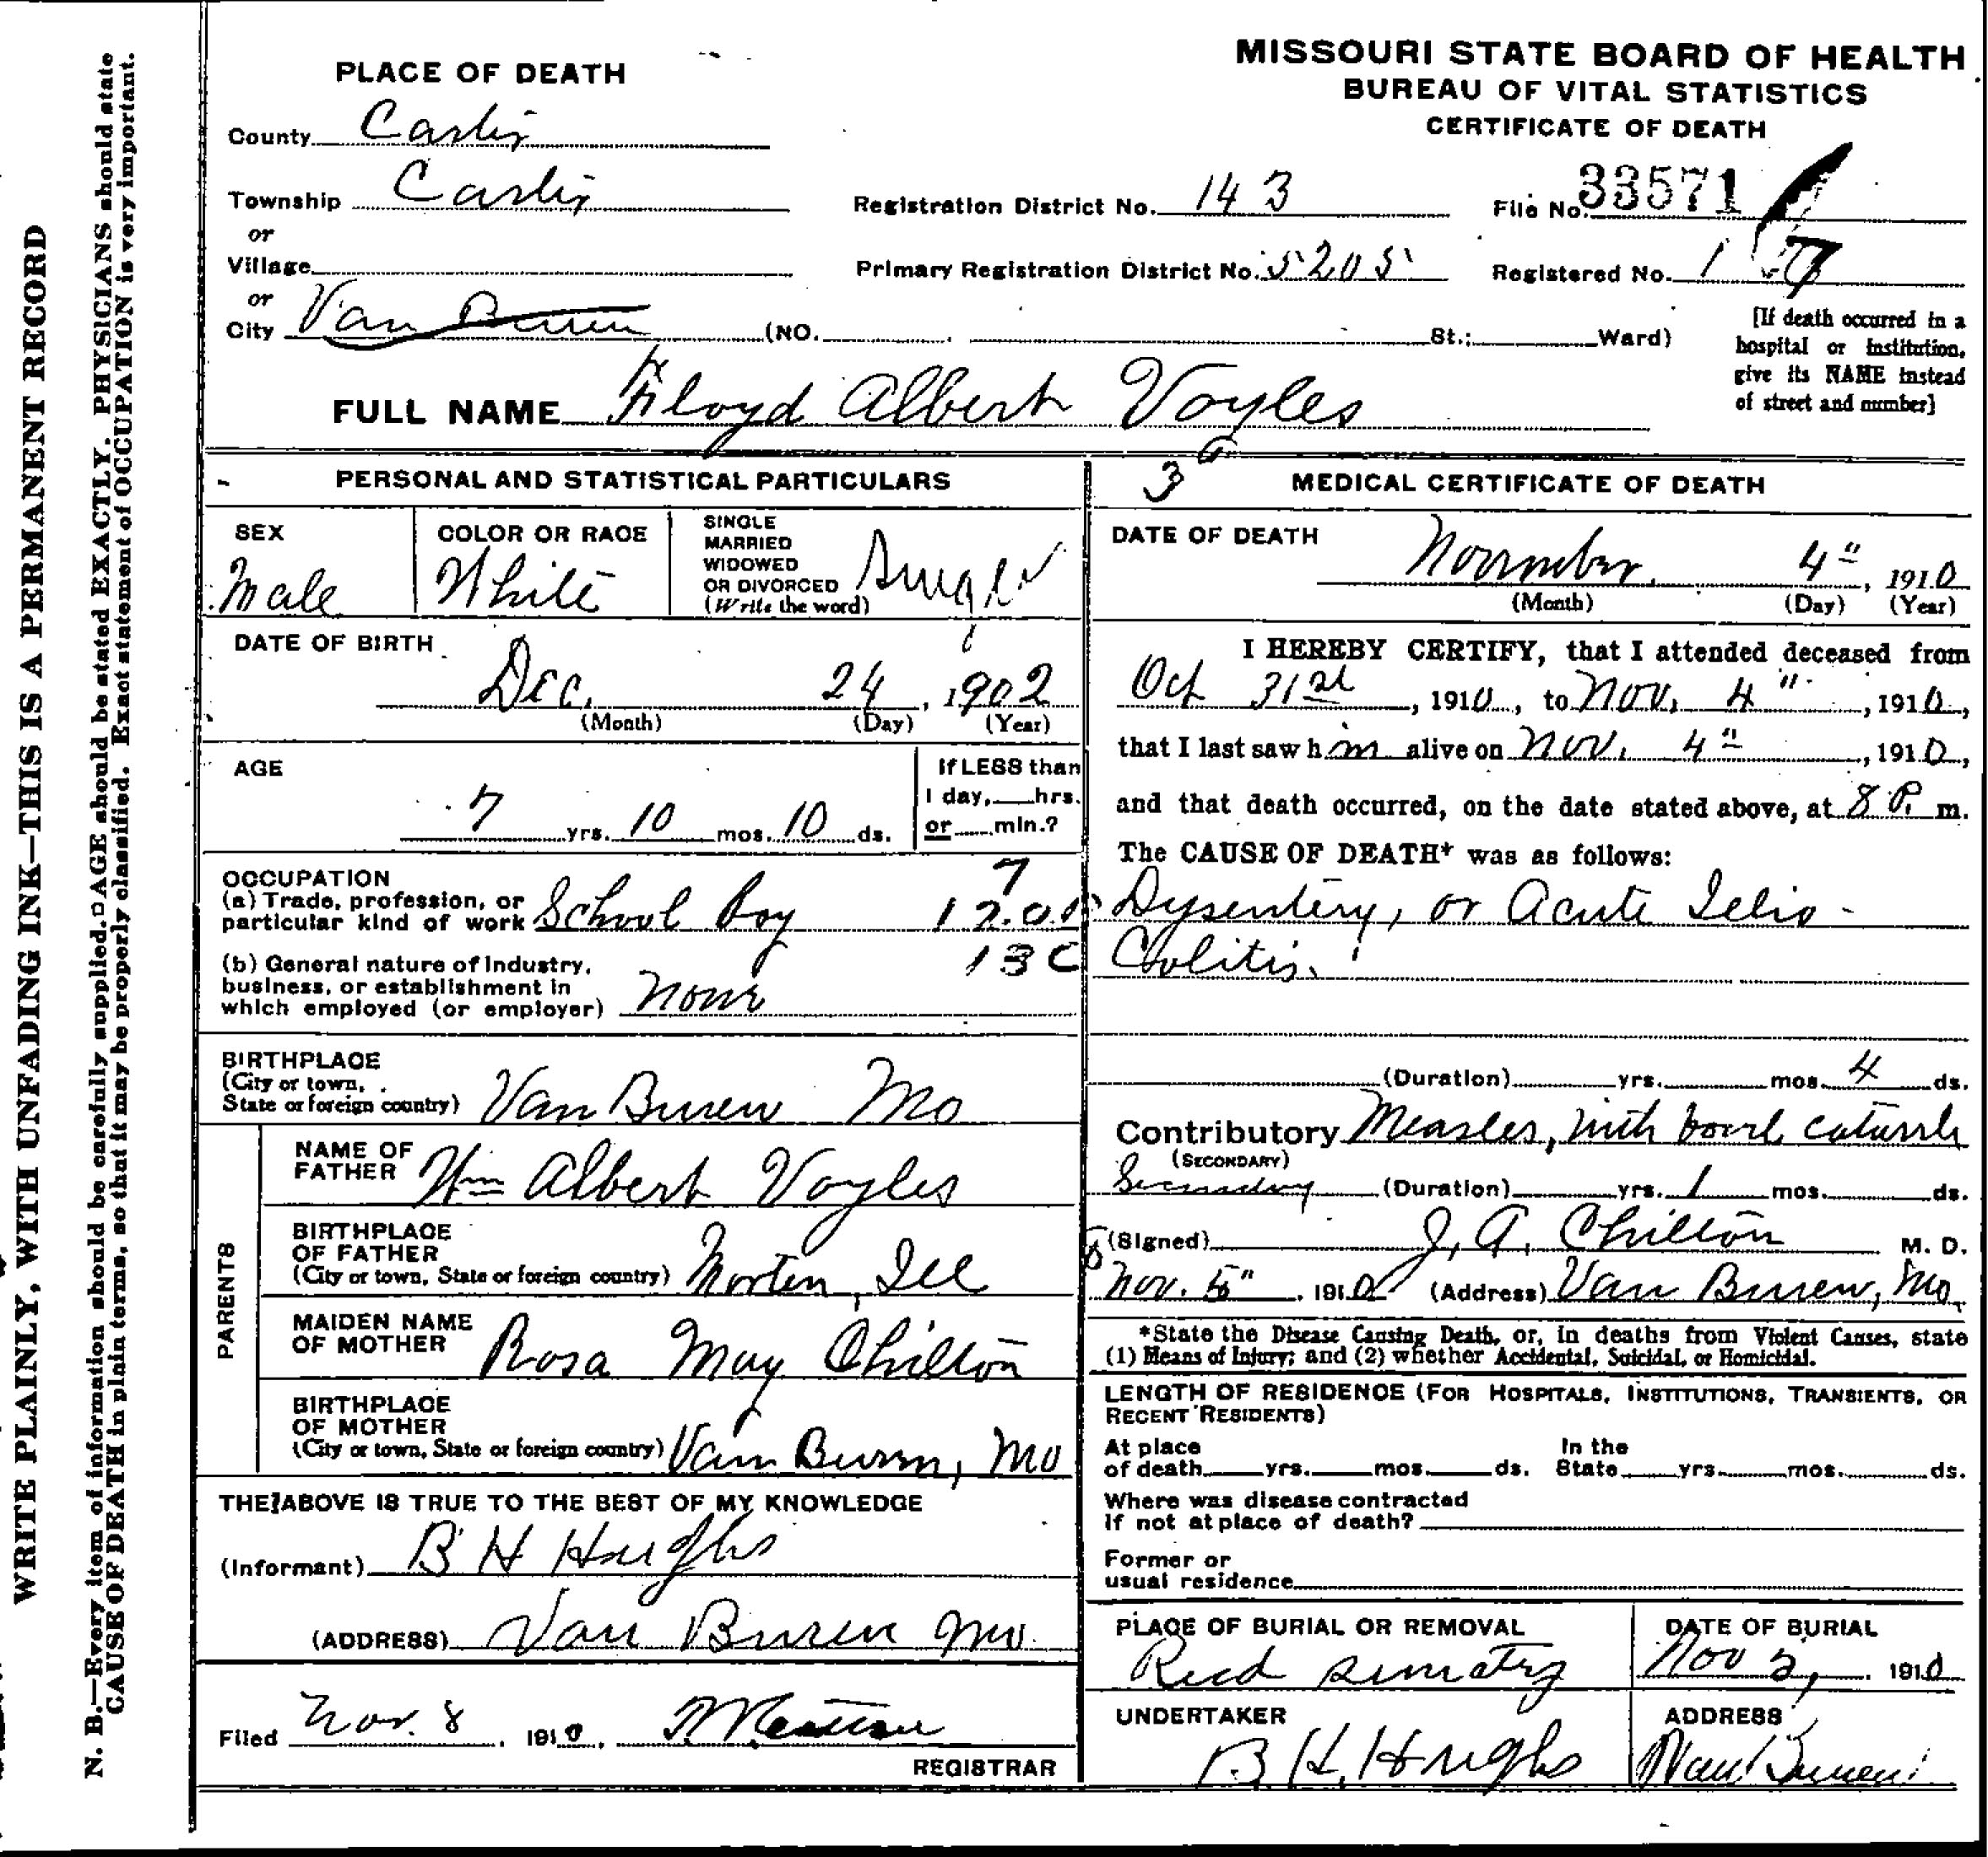 WRITE PLAINLY, WITH UNFADING INK—THIS IS A PERMANENT RECORD
N. B.—Every item of information should be carefully supplied. AGE should be stated EXACTLY. PHYSICIANS should state
CAUSE OF DEATH in plain terms, so that it may be properly classified. Exact statement of OCCUPATION is very important.
MISSOURI STATE BOARD OF HEALTH
BUREAU OF VITAL STATISTICS
CERTIFICATE OF DEATH
PLACE OF DEATH
County Carter
Township Carter
or
Village
or
City Van Buren (NO. St.; Ward)
Registration District No. 143
File No. 33571
Primary Registration District No. 5205
Registered No. 1 7
[If death occurred in a
hospital or institution,
give its NAME instead
of street and number]
FULL NAME Floyd Albert Voyles
PERSONAL AND STATISTICAL PARTICULARS
SEX
Male
COLOR OR RACE
White
SINGLE
MARRIED
WIDOWED
OR DIVORCED
(Write the word)
Single
DATE OF BIRTH
Dec. 24, 1902
(Month) (Day) (Year)
AGE
7 yrs. 10 mos. 10 ds.
If LESS than
1 day, hrs.
or min.?
OCCUPATION
(a) Trade, profession, or
particular kind of work School Boy
(b) General nature of industry,
business, or establishment in
which employed (or employer) None
BIRTHPLACE
(City or town,
State or foreign country) Van Buren Mo
PARENTS
NAME OF
FATHER Wm Albert Voyles
BIRTHPLACE
OF FATHER
(City or town, State or foreign country) Morten, Ill
MAIDEN NAME
OF MOTHER Rosa May Chilton
BIRTHPLACE
OF MOTHER
(City or town, State or foreign country) Van Buren, Mo
THE ABOVE IS TRUE TO THE BEST OF MY KNOWLEDGE
(Informant) B H Hughs
(ADDRESS) Van Buren Mo.
Filed Nov. 8, 1910,
REGISTRAR
3
MEDICAL CERTIFICATE OF DEATH
DATE OF DEATH
November 4", 1910
(Month) (Day) (Year)
I HEREBY CERTIFY, that I attended deceased from
Oct 31st, 1910, to Nov. 4", 1910,
that I last saw him alive on Nov. 4", 1910,
and that death occurred, on the date stated above, at 8 P. m.
The CAUSE OF DEATH* was as follows:
Dysentery, or Acute Ielio-
Colitis.
(Duration) yrs. mos. 4 ds.
Contributory Measles, with bowel
(SECONDARY)
Secondary (Duration) yrs. 1 mos. ds.
(Signed) J. A. Chilton M. D.
Nov. 5", 1910 (Address) Van Buren, Mo.
*State the Disease Causing Death, or, in deaths from Violent Causes, state
(1) Means of Injury; and (2) whether Accidental, Suicidal, or Homicidal.
LENGTH OF RESIDENCE (FOR HOSPITALS, INSTITUTIONS, TRANSIENTS, OR
RECENT RESIDENTS)
At place
of death yrs. mos. ds.
In the
State yrs. mos. ds.
Where was disease contracted
if not at place of death?
Former or
usual residence
PLACE OF BURIAL OR REMOVAL
Reed
DATE OF BURIAL
Nov 5, 1910
UNDERTAKER
B. H. Hughs
ADDRESS
Van Buren